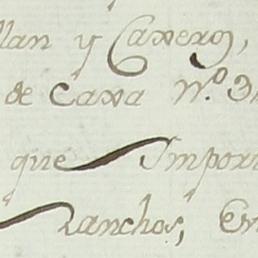 llan y Caxero,
de Caxa N.º 3
que Impor
Ranchos, En